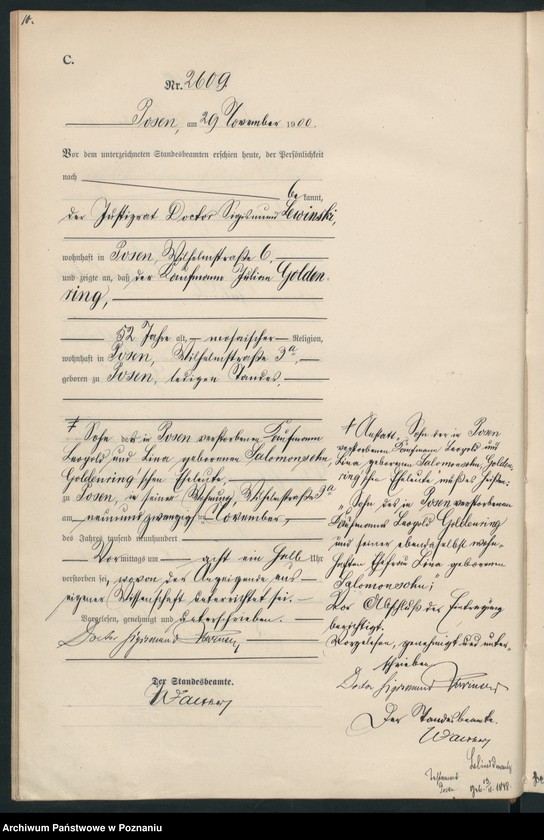 10.
C.
Nr. 2609
Posen, am 29 November 1900.
Vor dem unterzeichneten Standesbeamten erschien heute, der Persönlichkeit
nach
bekannt,
der Justizrat Doctor Sigismund Lewinski,
wohnhaft in Posen, Wilhelmstraße 6,
und zeigte an, daß der Kaufmann Julian Golden-
ring,
52 Jahre alt, mosaischer Religion,
wohnhaft in Posen, Wilhelmstraße 3a,
geboren zu Posen, ledigen Standes,
Sohn des in Posen verstorbenen Kaufmann
Leopold und Lina geborenen Salomonsohn,
Goldenring'schen Eheleute,
zu Posen, in seiner Wohnung Wilhelmstraße 3a
am neunundzwanzigsten November
des Jahres tausend neunhundert
Vormittags um acht ein halb Uhr
verstorben sei, wovon der Anzeigende aus
eigener Wissenschaft unterrichtet sei.
Vorgelesen, genehmigt und unterschrieben.
Doctor Sigismund Lewinski
Der Standesbeamte.
Anstatt: Sohn der in Posen
verstorbenen Kaufmann Leopold und
Lina geborenen Salomonsohn, Golden-
ring'schen Eheleute muß es heißen:
Sohn des in Posen verstorbenen
Kaufmanns Leopold Goldenring
und seiner ebendaselbst wohn-
haften Ehefrau Lina geborenen
Salomonsohn;
Vor Abschluß der Eintragung
berichtigt.
Vorgelesen, genehmigt und unter-
schrieben
Doctor Sigismund Lewinski
Der Standesbeamte.
Posen geb. 1848.
Archiwum Państwowe w Poznaniu